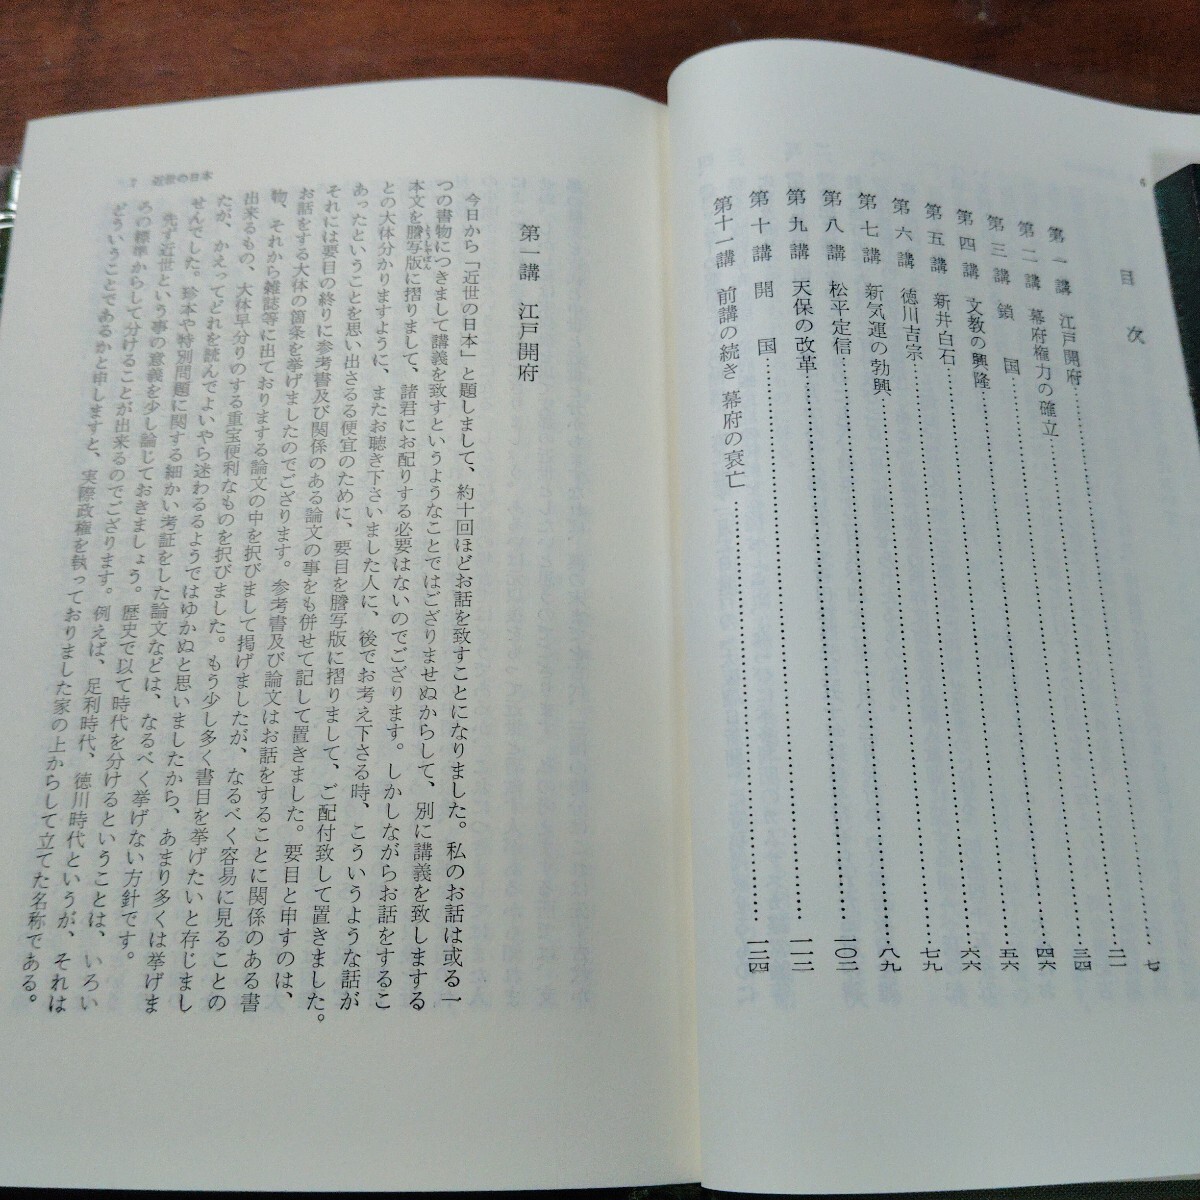 6
目次
第一講 江戸開府……七
第二講 幕府権力の確立……二一
第三講 鎖国……三四
第四講 文教の興隆……四六
第五講 新井白石……五六
第六講 徳川吉宗……六六
第七講 新気運の勃興……七九
第八講 松平定信……八九
第九講 天保の改革……一〇二
第十講 開国……一一二
第十一講 前講の続き 幕府の衰亡……一二四
7 近世の日本
第一講 江戸開府
今日から「近世の日本」と題しまして、約十回ほどお話を致すことになりました。私のお話は或る一
つの書物につきまして講義を致すというようなことではござりませぬからして、別に講義を致しまする
本文を謄写版に摺りまして、諸君にお配りする必要はないのでござります。しかしながらお話をするこ
との大体分かりますように、またお聴き下さいました人に、後でお考え下さる時、こういうような話が
あったということを思い出さるる便宜のために、要目を謄写版に摺りまして、ご配付致して置きました。
それには要目の終りに参考書及び関係のある論文の事をも併せて記して置きました。要目と申すのは、
お話をする大体の箇条を挙げましたのでござります。参考書及び論文はお話をすることに関係のある書
物、それから雑誌等に出ておりまする論文の中を択びまして掲げましたが、なるべく容易に見ることの
出来るもの、大体早分りのする重宝便利なものを択びました。もう少し多く書目を挙げたいと存じまし
たが、かえってどれを読んでよいやら迷わるるようではゆかぬと思いましたから、あまり多くは挙げま
せんでした。珍本や特別問題に関する細かい考証をした論文などは、なるべく挙げない方針です。
先ず近世という事の意義を少し論じておきましょう。歴史で以て時代を分けるということは、いろい
ろの標準からして分けることが出来るのでござります。例えば、足利時代、徳川時代というが、それは
どういうことであるかと申しますと、実際政権を執っておりました家の上からして立てた名称である。